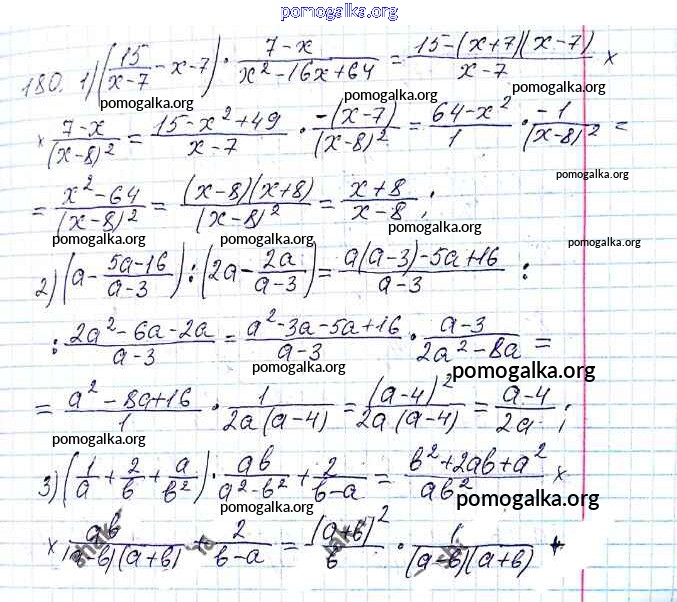 pomogalka.org
180. 1) (15/(x-7) - x - 7) · (7-x)/(x²-16x+64) = (15-(x+7)(x-7))/(x-7) ×
pomogalka.org pomogalka.org
× (7-x)/(x-8)² = (15-x²+49)/(x-7) · (-(x-7))/(x-8)² = (64-x²)/1 · (-1)/(x-8)² =
pomogalka.org pomogalka.org pomogalka.org
= (x²-64)/(x-8)² = ((x-8)(x+8))/(x-8)² = (x+8)/(x-8);
pomogalka.org pomogalka.org pomogalka.org
2) (a - (5a-16)/(a-3)) : (2a - 2a/(a-3)) = (a(a-3)-5a+16)/(a-3) :
pomogalka.org
: (2a²-6a-2a)/(a-3) = (a²-3a-5a+16)/(a-3) · (a-3)/(2a²-8a) =
pomogalka.org pomogalka.org
= (a²-8a+16)/1 · 1/(2a(a-4)) = (a-4)²/(2a(a-4)) = (a-4)/(2a);
pomogalka.org
3) (1/a + 2/b + a/b²) · ab/(a²-b²) + 2/(b-a) = (b²+2ab+a²)/(ab²) ×
pomogalka.org pomogalka.org
× ab/((a-b)(a+b)) + 2/(b-a) = (a+b)²/b · 1/((a-b)(a+b)) +